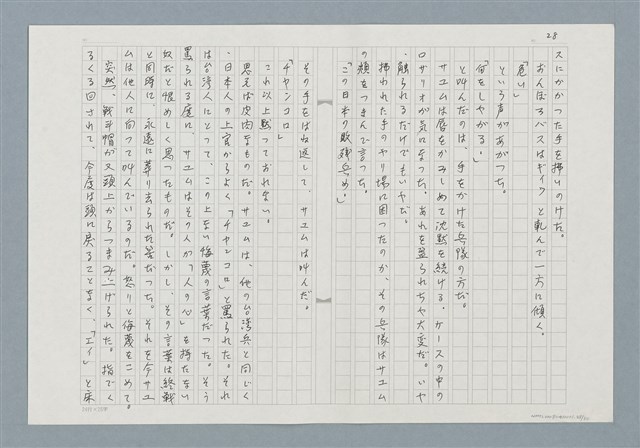 28
スにかかつた手を掃いのけた。
おんぼろバスはギイッと軋んで一方に傾く。
「危い」
という声があがつた。
「何をしやがる。」
と叫んだのは、手をかけた兵隊の方だ。
サユムは唇をかみしめて沈黙を続ける。ケースの中の
ロサリオが気になつた。あれを盗られちや大変だ。いや
、触られるだけでもいやだ。
掃われた手のやり場に困つたのか、その兵隊はサユム
の顔をつまんで言つた。
「この日本の敗残兵め。」
その手をはね返して、サユムは叫んだ。
「チャンコロ」
これ以上黙つておれない。
思えば皮肉なものだ。サユムは、他の台湾兵と同じく
、日本人の上官からよく「チャンコロ」と罵られた。それ
は台湾人にとつて、この上ない侮蔑の言葉だつた。そう
罵られる度に、サユムはその人が「人の心」を持たない
奴だと恨めしく思つたものだ。しかし、その言葉は終戦
と同時に、永遠に葬り去られた筈だつた。それを今サユ
ムは他人に向つて叫んでいるのだ。怒りと侮蔑をこめて。
突然、戦斗帽が又頭上からつまみ上げられた。指でく
るくる回されて、今度は頭に戻ることなく、「エイ」と床